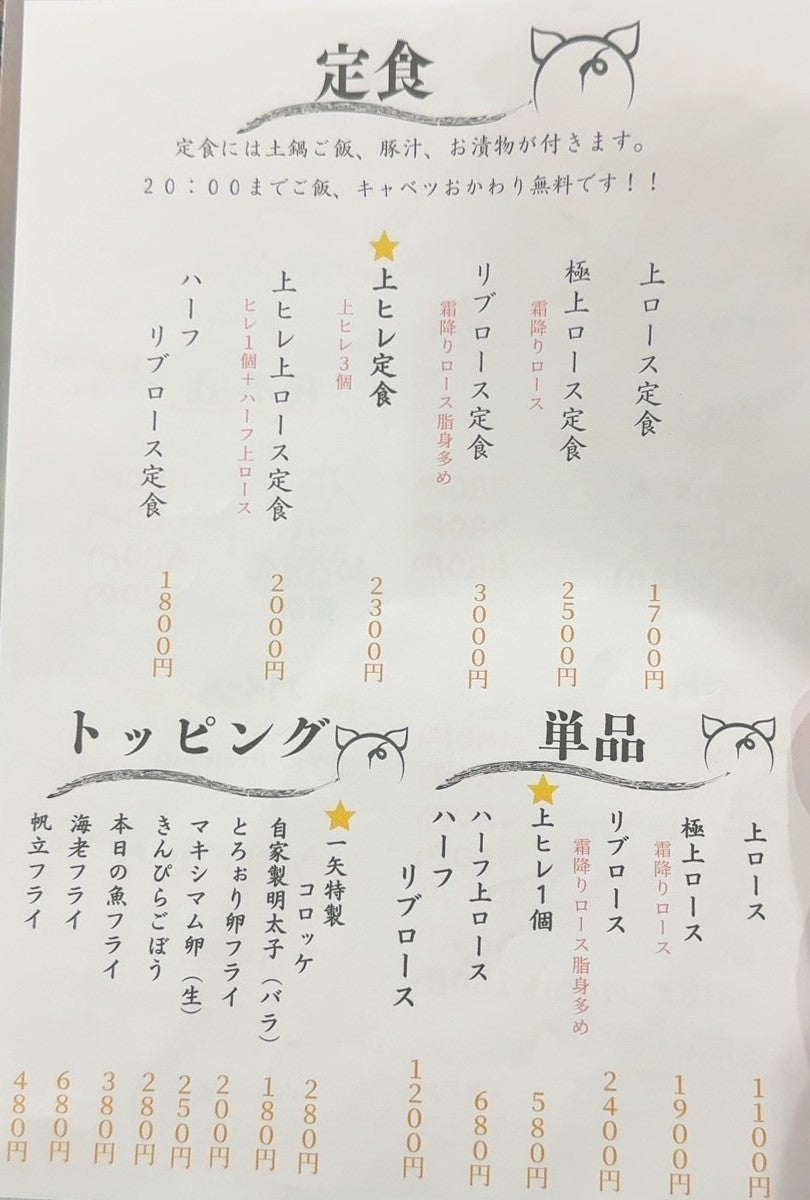 定食
定食には土鍋ご飯、豚汁、お漬物が付きます。
20:00までご飯、キャベツおかわり無料です!!
上ロース定食
1700円
極上ロース定食
霜降りロース
2500円
リブロース定食
霜降りロース脂身多め
3000円
上ヒレ定食
上ヒレ3個
2300円
上ヒレ上ロース定食
ヒレ1個+ハーフ上ロース
2000円
ハーフ
リブロース定食
1800円
単品
上ロース
1100円
極上ロース
霜降りロース
1900円
リブロース
霜降りロース脂身多め
2400円
上ヒレ1個
580円
ハーフ上ロース
680円
ハーフ
リブロース
1200円
トッピング
一矢特製
コロッケ
280円
自家製明太子(バラ)
180円
とろぉり卵フライ
200円
マキシマム卵(生)
250円
きんぴらごぼう
280円
本日の魚フライ
380円
海老フライ
680円
帆立フライ
480円